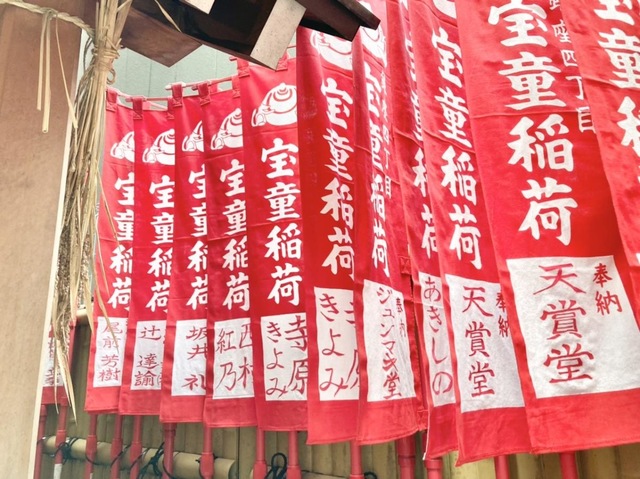 宝童稲荷
尾前 芳樹
宝童稲荷
辻 達諭
宝童稲荷
坂井 礼
宝童稲荷
西村
紅乃
宝童稲荷
寺原
きよみ
宝童稲荷
きよみ
宝童稲荷
奉納
ジュンマヂ堂
あきしの
宝童稲荷
奉納
天賞堂
銀座四丁目
宝童稲荷
奉納
天賞堂
宝童稲荷
奉納